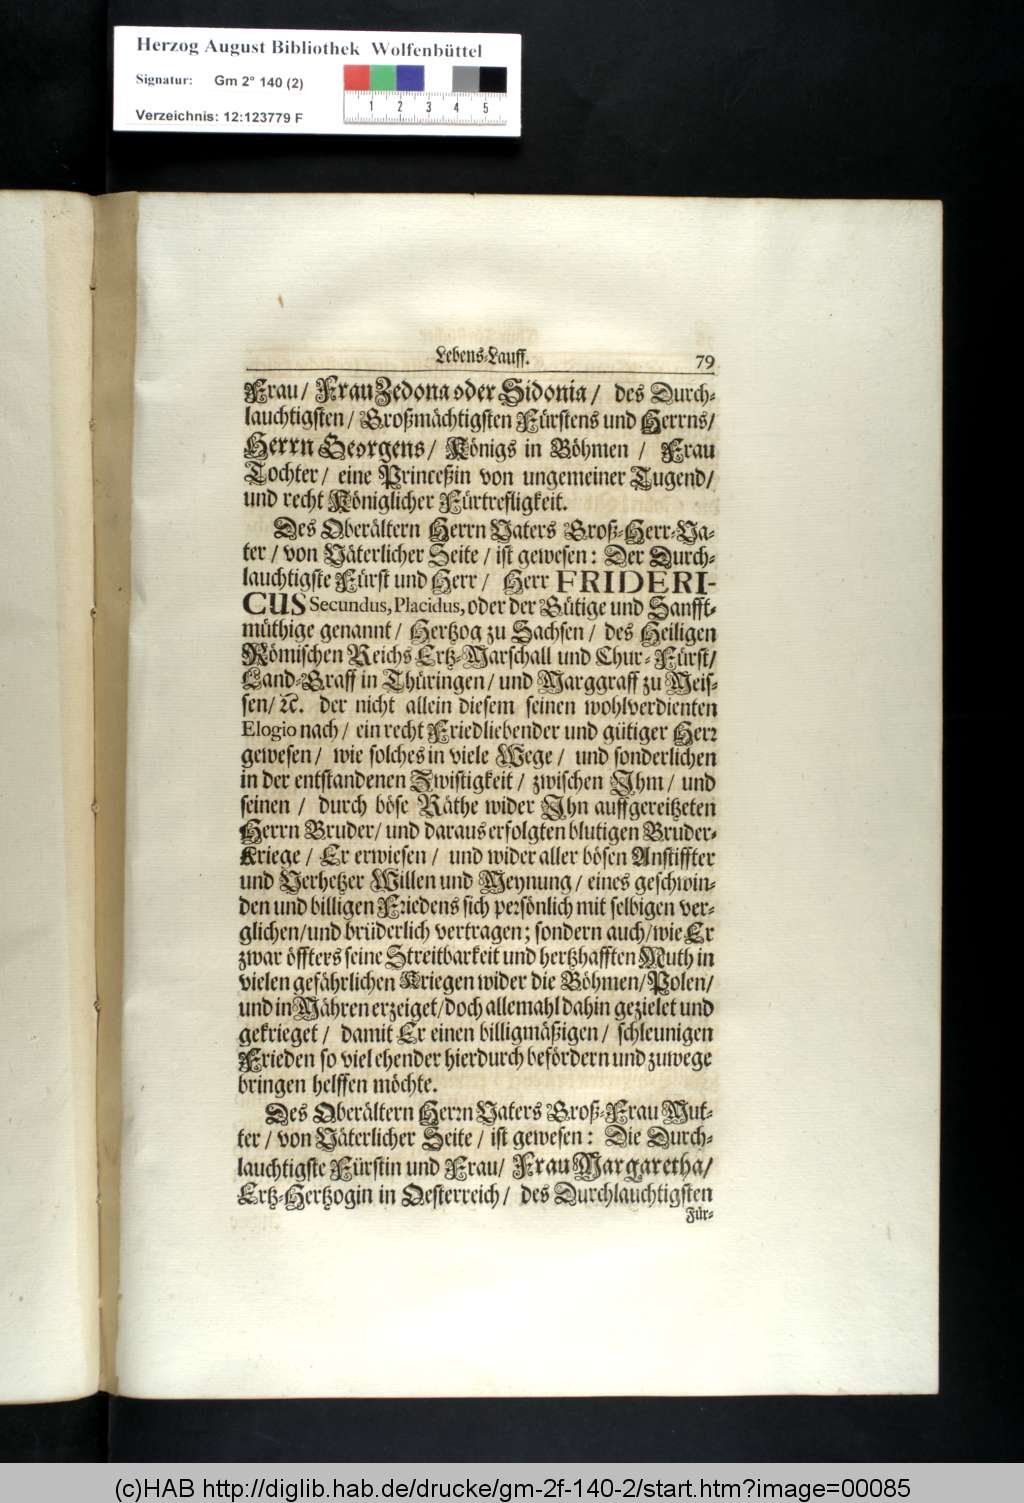 Herzog August Bibliothek Wolfenbüttel
Signatur: Gm 2° 140 (2)
1 2 3 4 5
Verzeichnis: 12:123779 F
Lebens-Lauff. 79
Frau/ Frau Zedona oder Sidonia/ des Durch-
lauchtigsten/ Großmächtigsten Fürstens und Herrns/
Herrn Georgens/ Königs in Böhmen / Frau
Tochter/ eine Princeßin von ungemeiner Tugend/
und recht Königlicher Fürtrefligkeit.
Des Oberältern Herrn Vaters Groß-Herr-Va-
ter / von Väterlicher Seite / ist gewesen: Der Durch-
lauchtigste Fürst und Herr/ Herr FRIDERI-
CUS Secundus, Placidus, oder der Gütige und Sanfft-
müthige genannt/ Hertzog zu Sachsen / des Heiligen
Römischen Reichs Ertz-Marschall und Chur-Fürst/
Land-Graff in Thüringen/ und Marggraff zu Meis-
sen/ ꝛc. der nicht allein diesem seinen wohlverdienten
Elogio nach/ ein recht Friedliebender und gütiger Herr
gewesen/ wie solches in viele Wege / und sonderlichen
in der entstandenen Zwistigkeit / zwischen Ihm / und
seinen / durch böse Räthe wider Ihn auffgereitzeten
Herrn Bruder/ und daraus erfolgten blutigen Bruder-
Kriege / Er erwiesen / und wider aller bösen Anstiffter
und Verhetzer Willen und Meynung / eines geschwin-
den und billigen Friedens sich persönlich mit selbigen ver-
glichen/und brüderlich vertragen; sondern auch/wie Er
zwar öffters seine Streitbarkeit und hertzhafften Muth in
vielen gefährlichen Kriegen wider die Böhmen/Polen/
und in Mähren erzeiget/doch allemahl dahin gezielet und
gekrieget / damit Er einen billigmäßigen / schleunigen
Frieden so viel ehender hierdurch befördern und zuwege
bringen helffen möchte.
Des Oberältern Herrn Vaters Groß-Frau Mut-
ter / von Väterlicher Seite / ist gewesen: Die Durch-
lauchtigste Fürstin und Frau/ Frau Margaretha/
Ertz-Hertzogin in Oesterreich/ des Durchlauchtigsten
Für-
(c)HAB http://diglib.hab.de/drucke/gm-2f-140-2/start.htm?image=00085